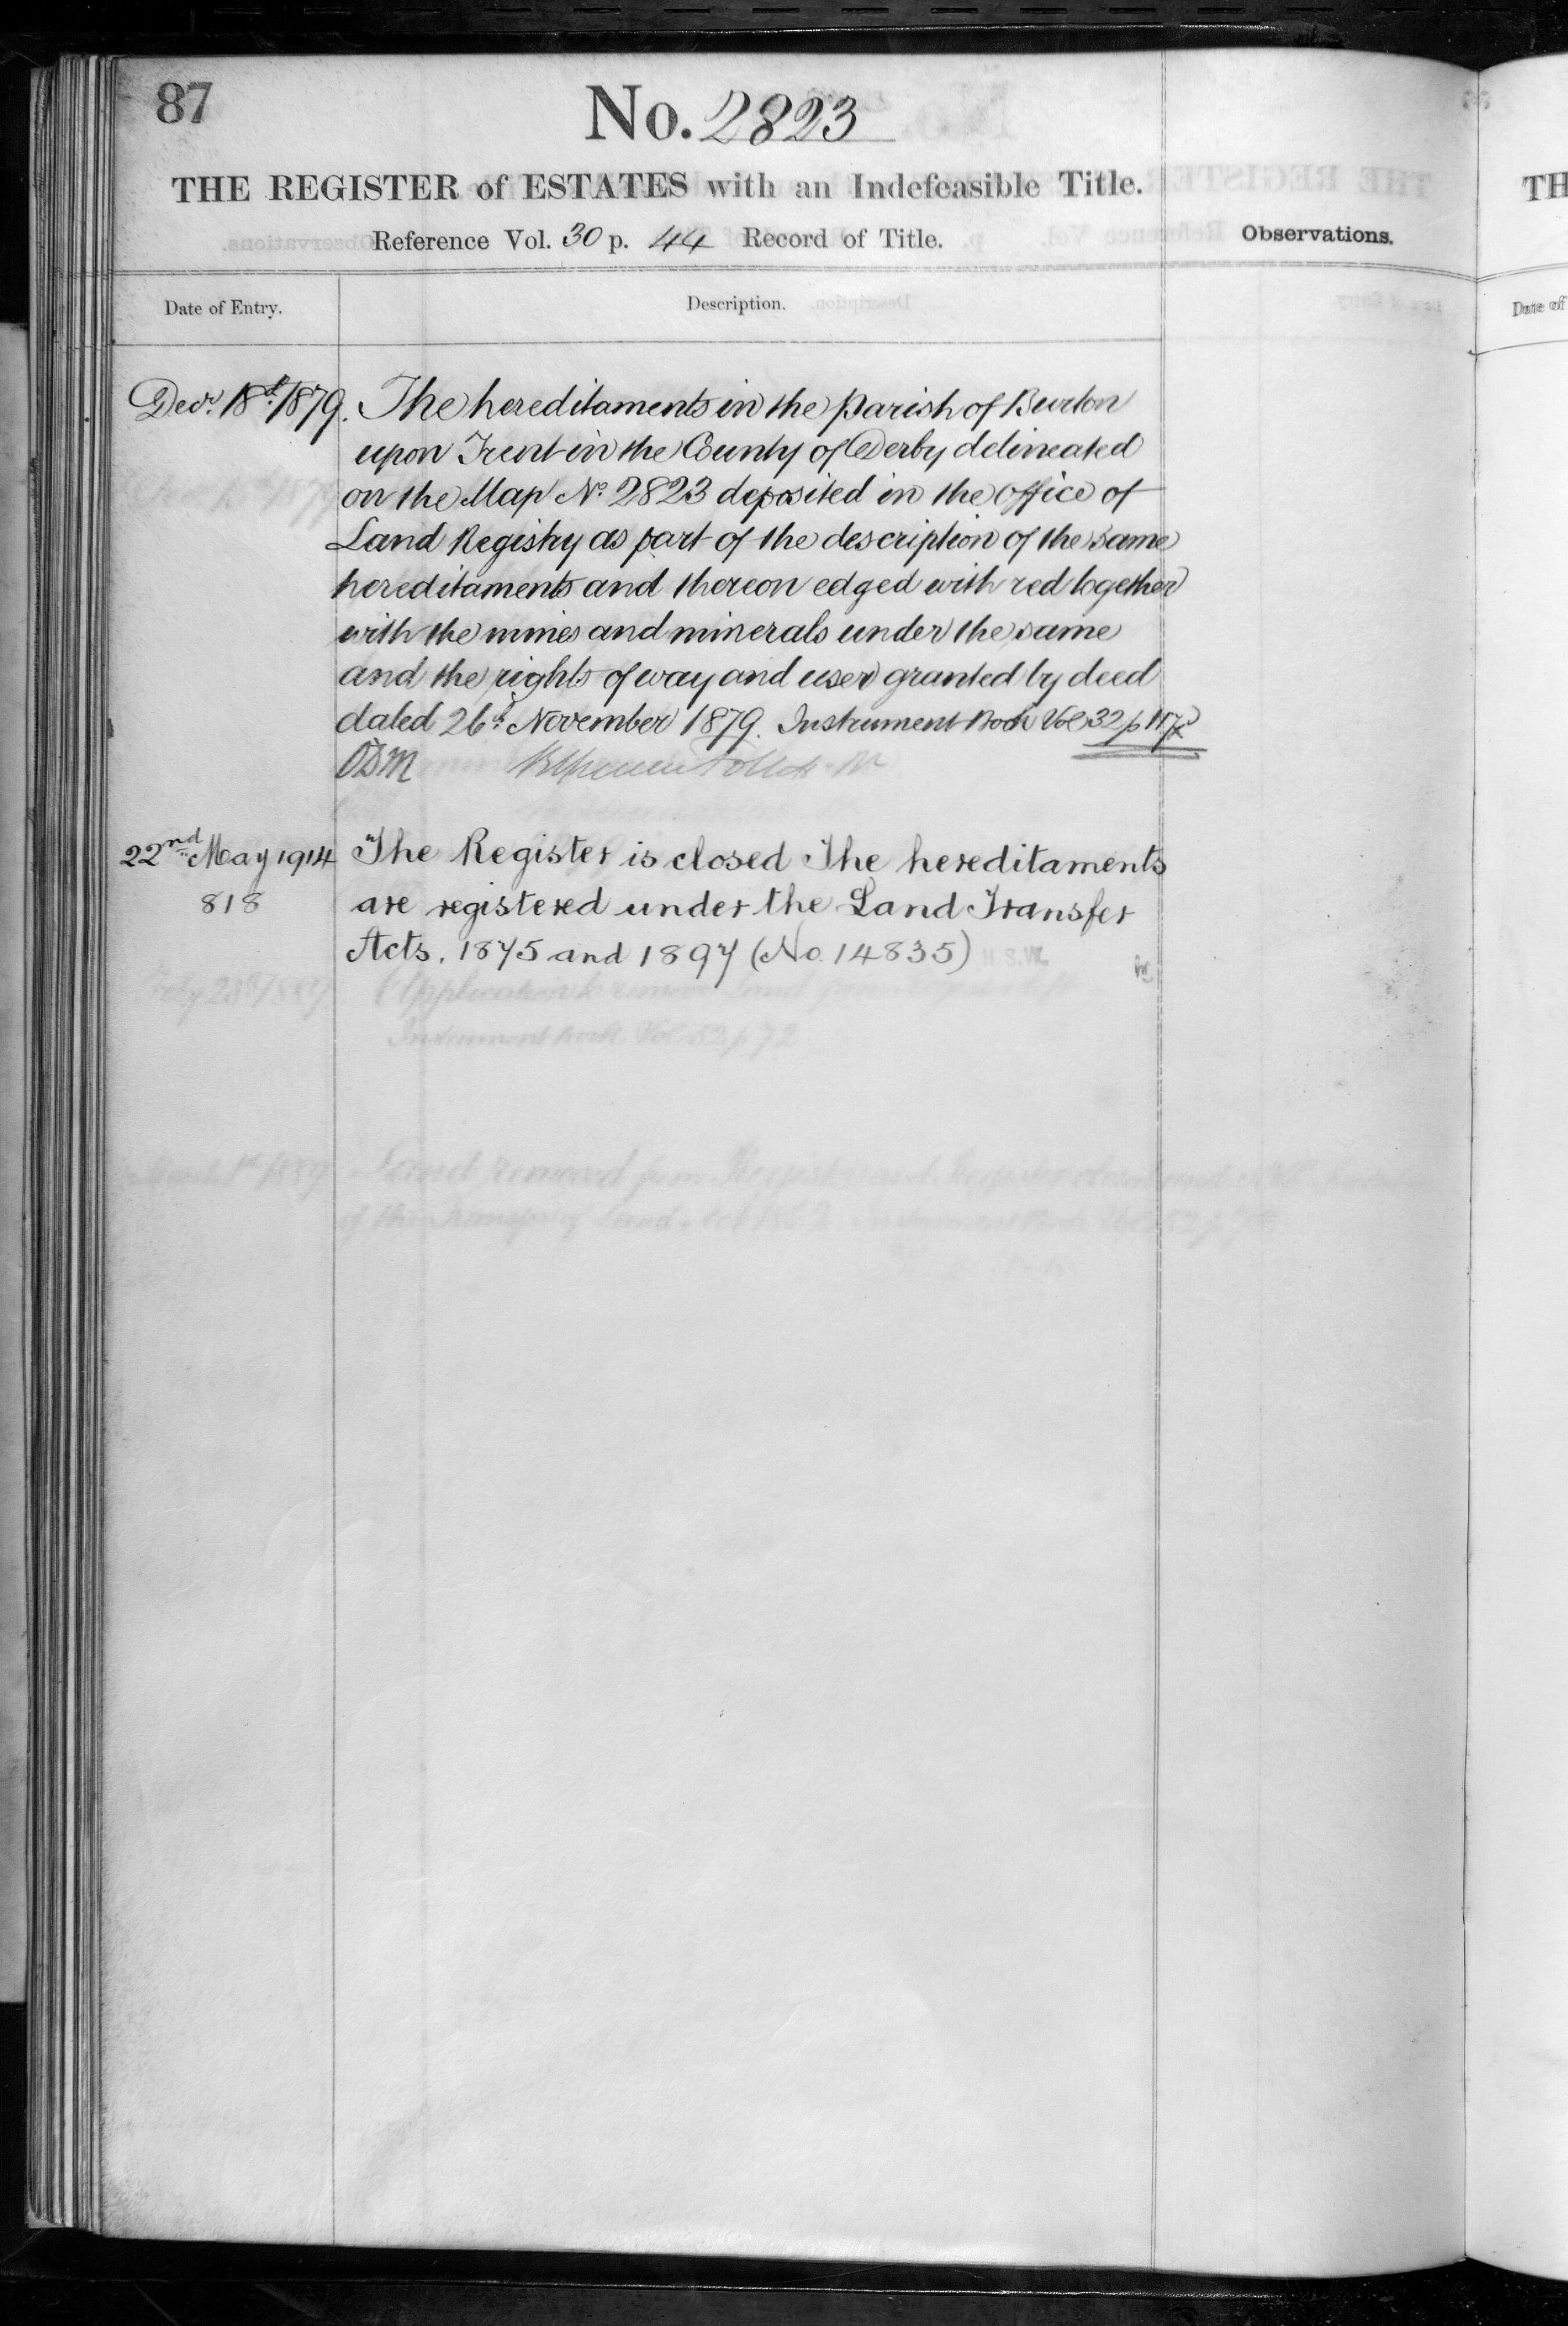 87
No. 2823
THE REGISTER of ESTATES with an Indefeasible Title.
Reference Vol. 30 p. 44 Record of Title.
Observations.
Date of Entry.
Description.
Decr. 18th 1879. The hereditaments in the parish of Burton
upon Trent in the County of Derby delineated
on the Map No. 2823 deposited in the office of
Land Registry as part of the description of the same
hereditaments and thereon edged with red together
with the mines and minerals under the same
and the rights of way and user granted by deed
dated 26th November 1879. Instrument Book Vol 32 p
ODM
22nd May 1914 The Register is closed The hereditaments
818 are registered under the Land Transfer
Acts, 1875 and 1897 (No. 14835)
TH
Date of